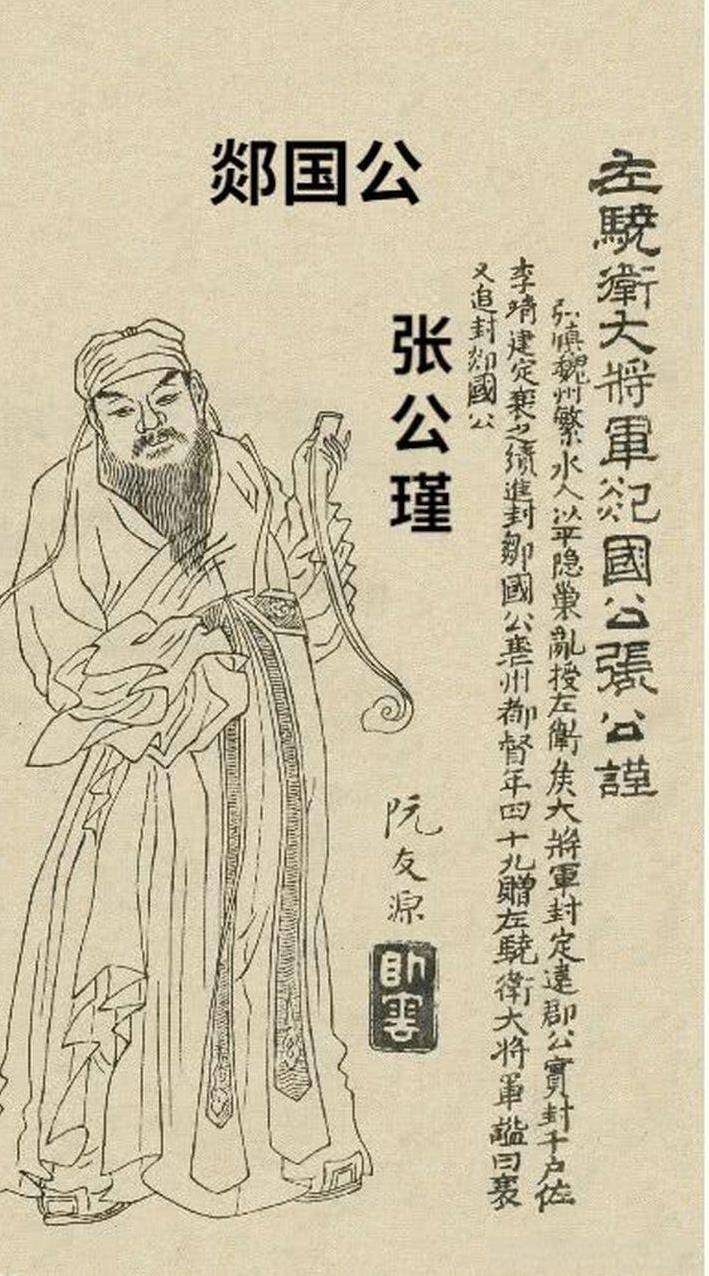 郯国公
张公瑾
左驍衛大將軍郯國公張公謹
弘慎魏州繁水人以平隐巢亂授左衛矦大將軍封定遠郡公實封千户佐
李靖建定襄之績進封鄒國公襄州都督年四十九贈左驍衛大将軍謚曰襄
又追封郯國公
阮友源